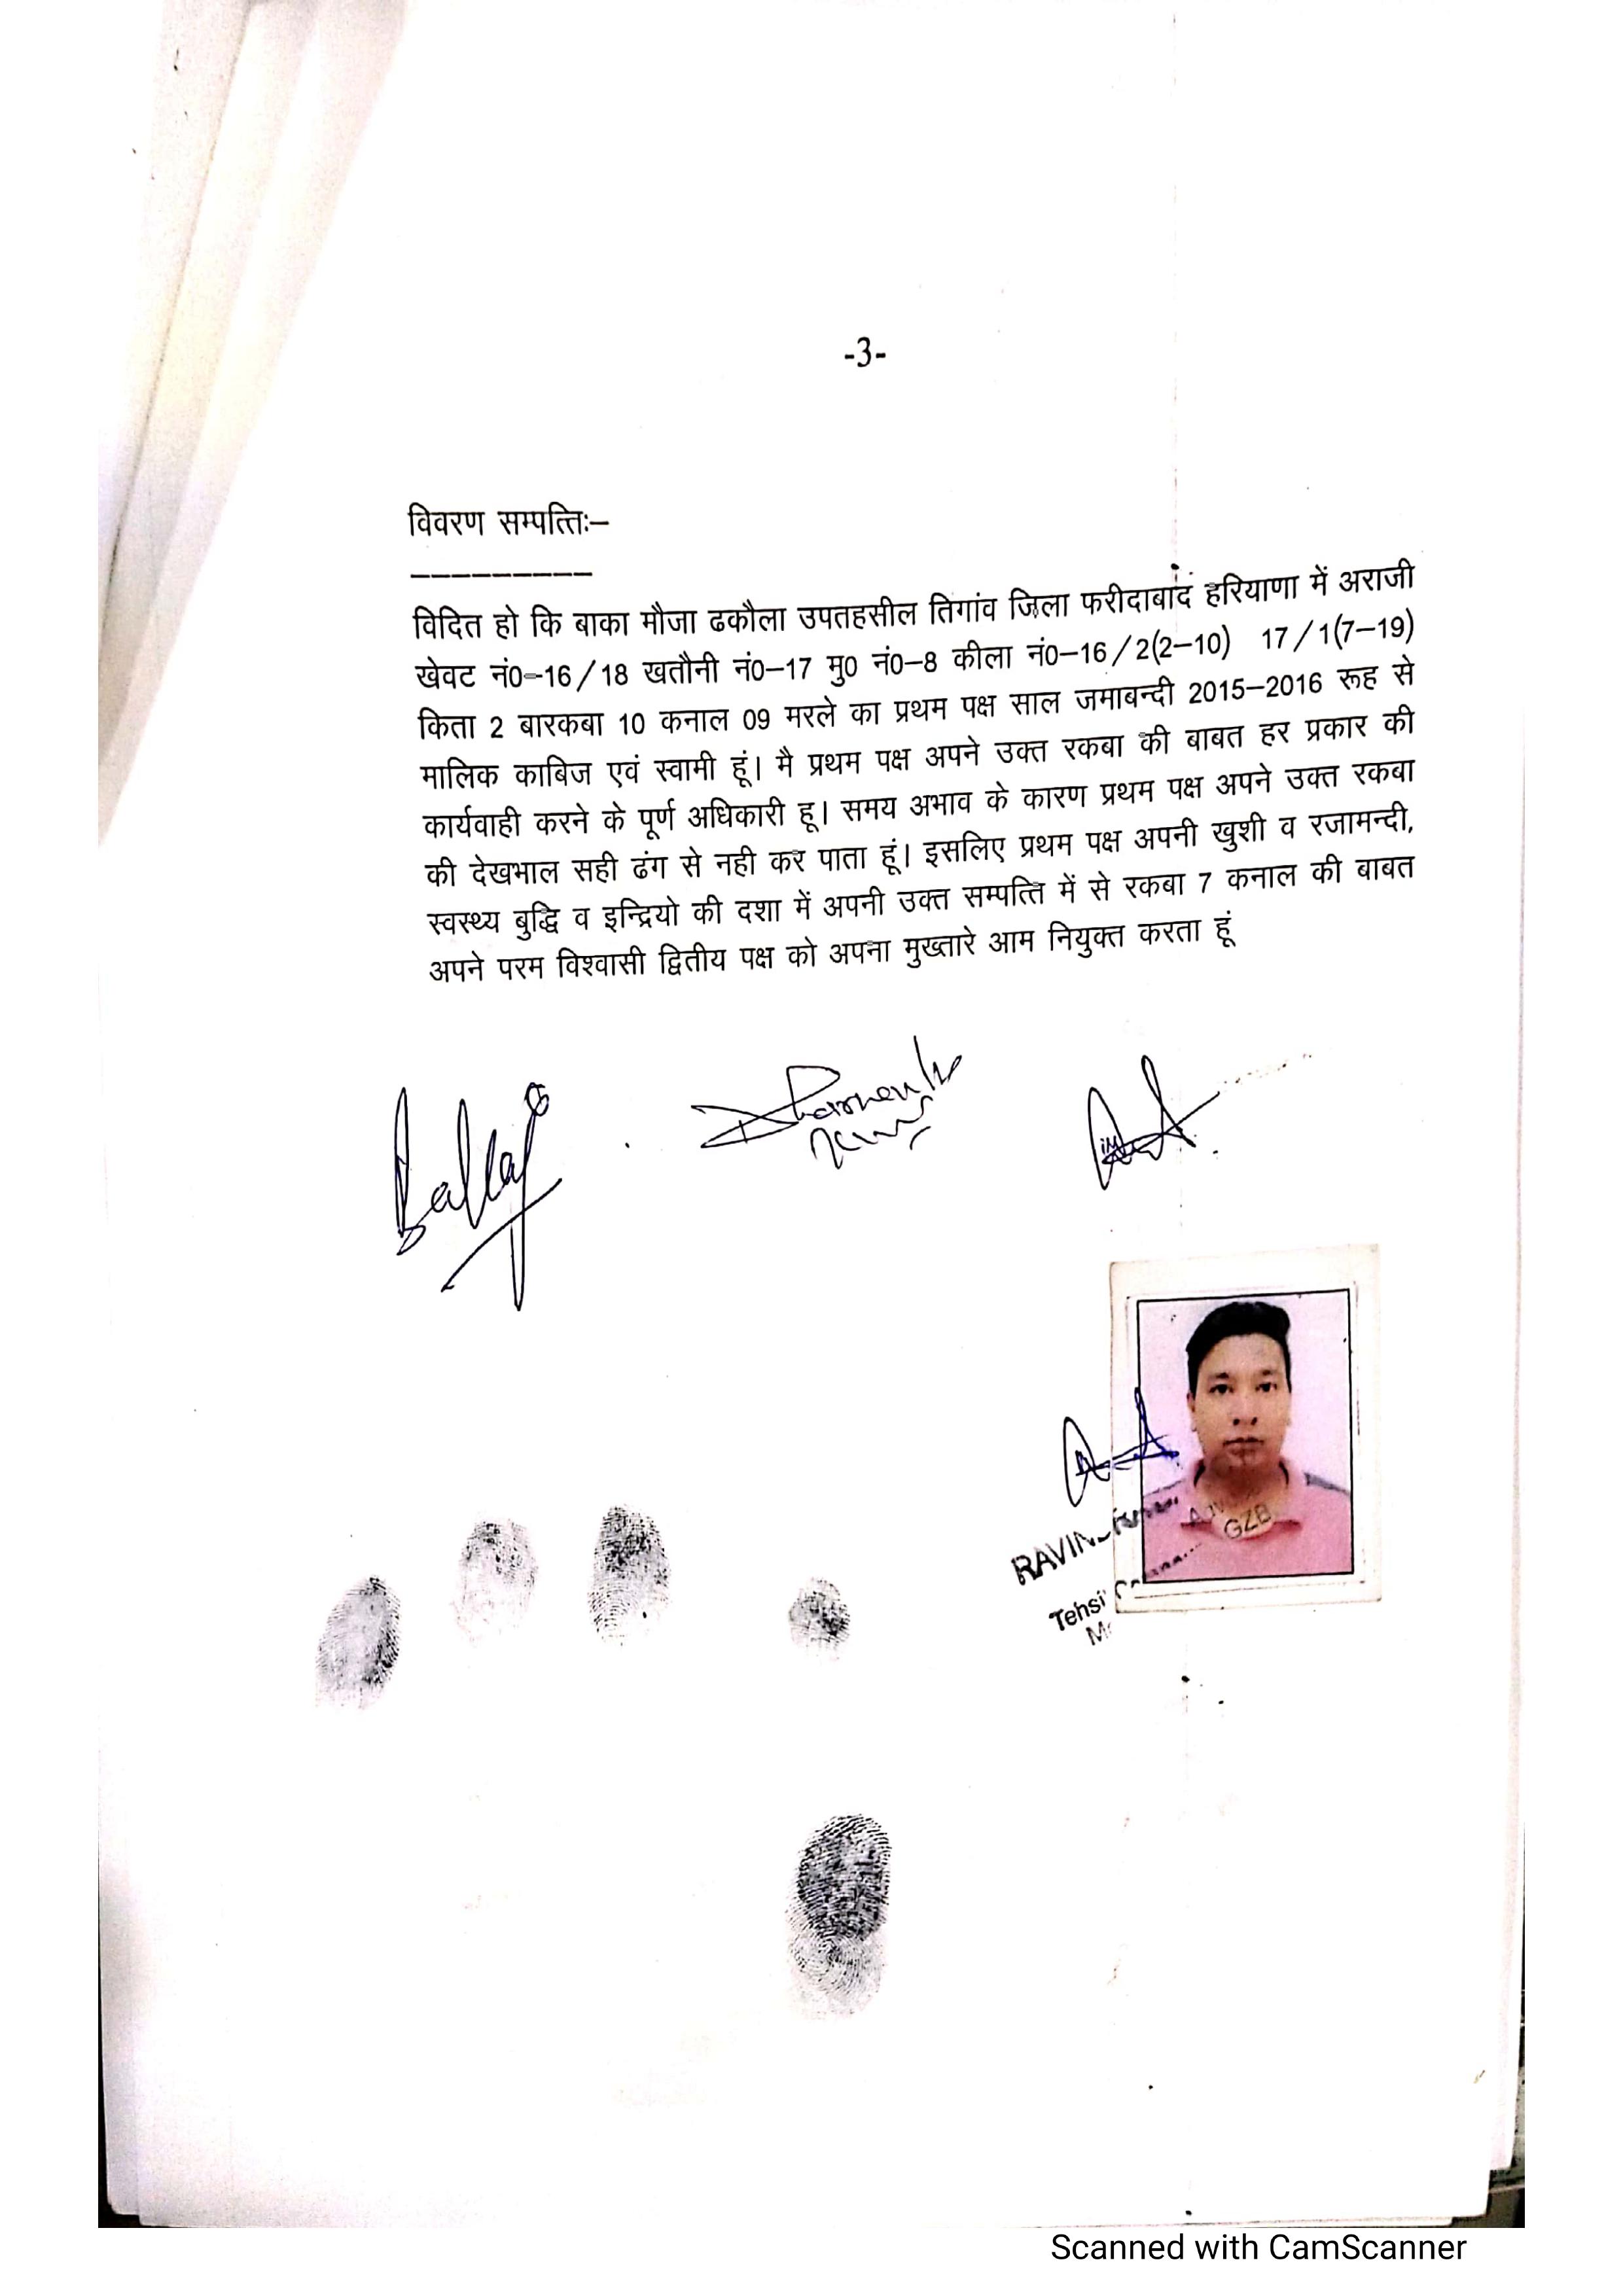 -3-
विवरण सम्पत्तिः–
–––––––––
विदित हो कि बाका मौजा ढकौला उपतहसील तिगांव जिला फरीदाबाद हरियाणा में अराजी
खेवट नं0–16/18 खतौनी नं0–17 मु0 नं0–8 कीला नं0–16/2(2–10) 17/1(7–19)
किता 2 बारकबा 10 कनाल 09 मरले का प्रथम पक्ष साल जमाबन्दी 2015–2016 रूह से
मालिक काबिज एवं स्वामी हूं। मै प्रथम पक्ष अपने उक्त रकबा की बाबत हर प्रकार की
कार्यवाही करने के पूर्ण अधिकारी हू। समय अभाव के कारण प्रथम पक्ष अपने उक्त रकबा
की देखभाल सही ढंग से नही कर पाता हूं। इसलिए प्रथम पक्ष अपनी खुशी व रजामन्दी,
स्वस्थ्य बुद्धि व इन्द्रियो की दशा में अपनी उक्त सम्पत्ति में से रकबा 7 कनाल की बाबत
अपने परम विश्वासी द्वितीय पक्ष को अपना मुख्तारे आम नियुक्त करता हूं
GZB
Scanned with CamScanner